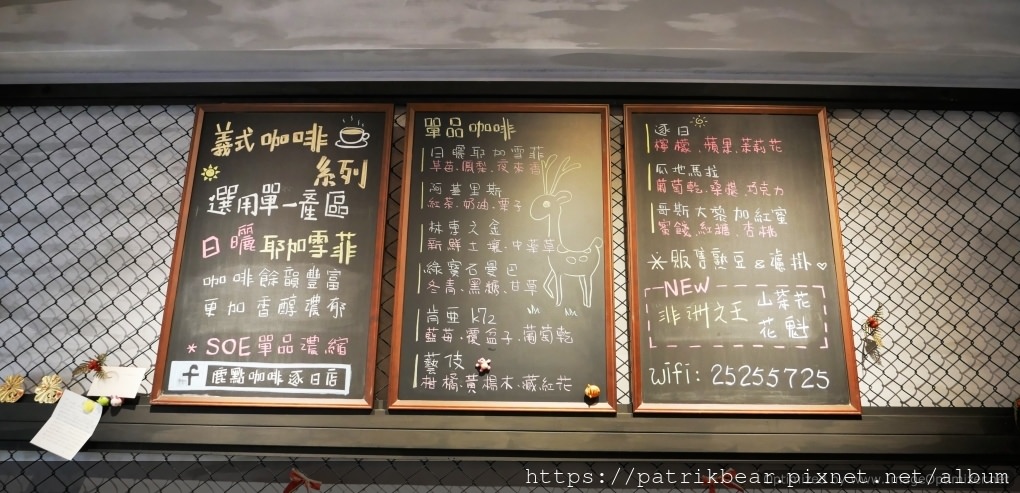 義式咖啡
系列
選用單一產區
日曬耶加雪菲
咖啡餘韻豐富
更加香醇濃郁
* SOE單品濃縮
f 鹿點咖啡逐日店
單品咖啡
日曬耶加雪菲
草莓.鳳梨.夜來香
阿基里斯
紅茶.奶油.栗子
林東之金
新鮮土壤.中藥草
綠寶石曼巴
冬青.黑糖.甘草
肯亞 K72
藍莓.覆盆子.葡萄乾
藝伎
柑橘.黃楊木.藏紅花
逐日
檸檬.蘋果.茉莉花
瓜地馬拉
葡萄乾.巧克力
哥斯大黎加紅蜜
蜜餞.紅糖.杏桃
※販售熟豆&濾掛♡
NEW
非洲之王 山茶花
花魁
Wifi: 25255725
https://patrikbear.pixnet.net/album